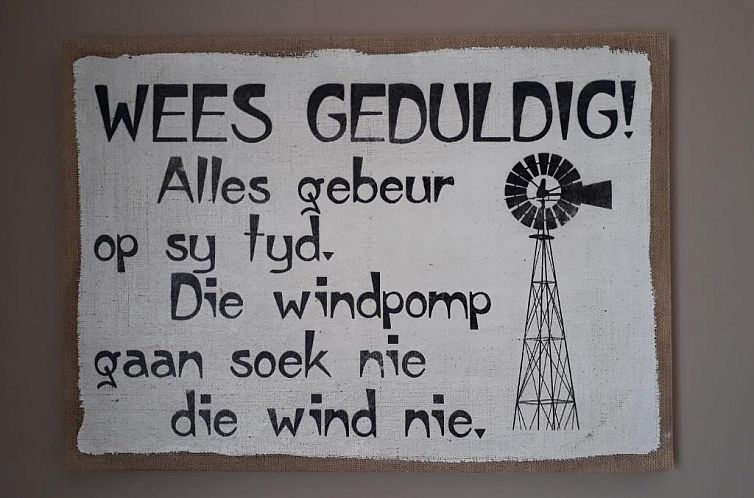 WEES GEDULDIG!
Alles gebeur
op sy tyd.
Die windpomp
gaan soek nie
die wind nie.